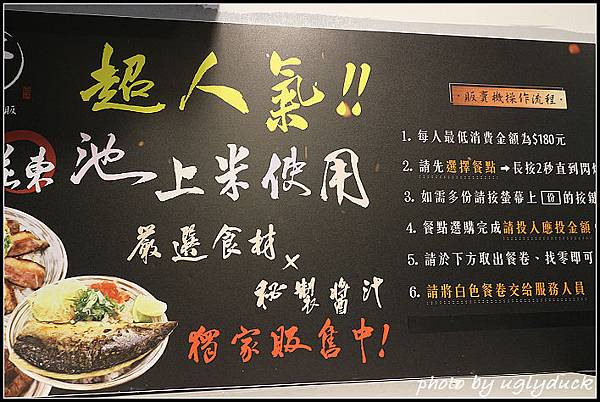 超人氣!!
東
池上米使用
嚴選食材
×
秘製醬汁
獨家販售中!
販
·販賣機操作流程·
1. 每人最低消費金額為$180元
2. 請先選擇餐點➡長按2秒直到閃
3. 如需多份請按螢幕上 份 的按鍵
4. 餐點選購完成請投入應投金額
5. 請於下方取出餐卷、找零即可
6. 請將白色餐卷交給服務人員
photo by uglyduck